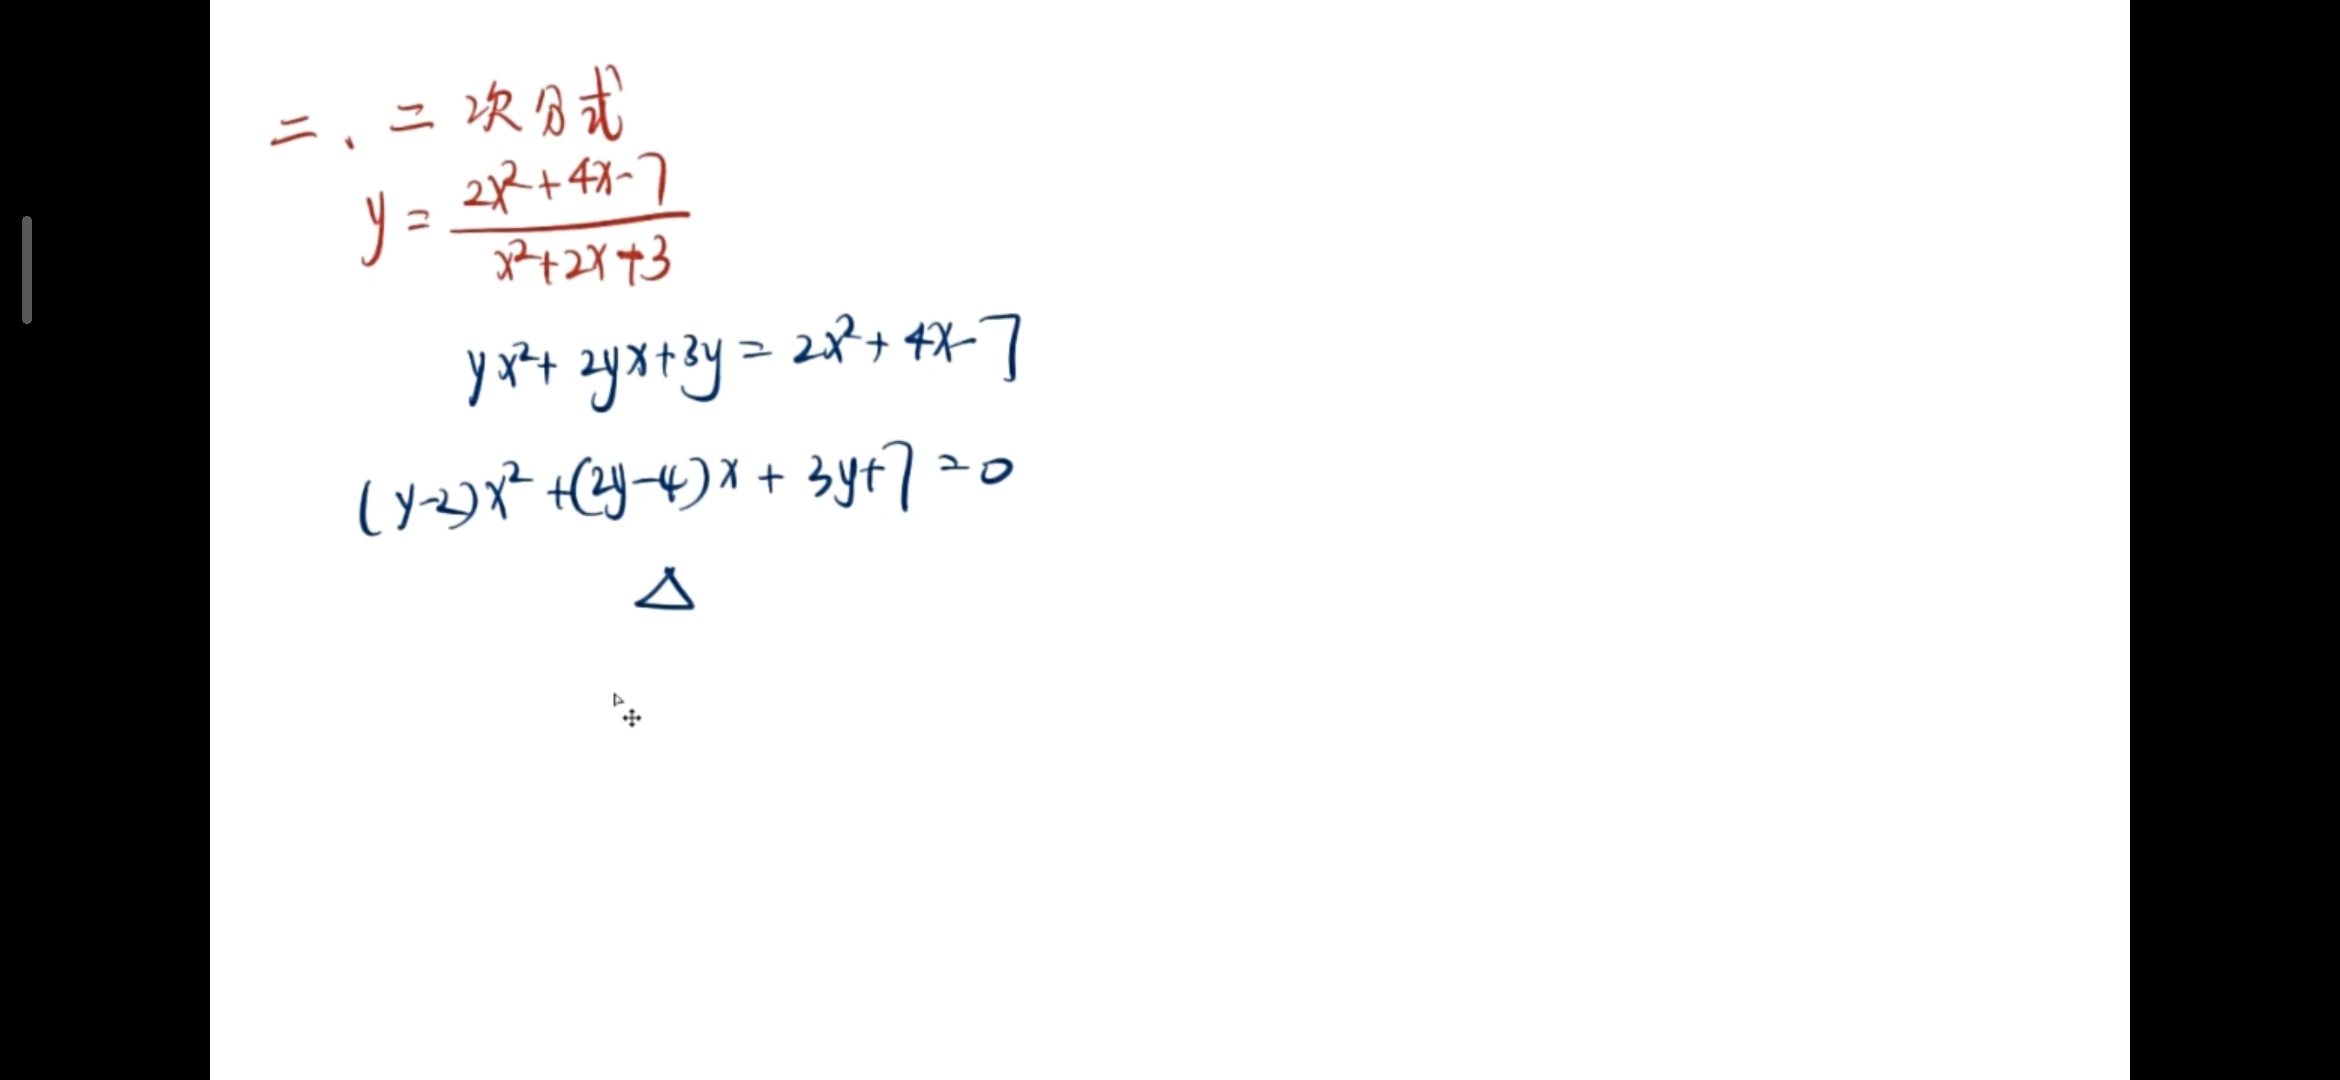 二、二次分式
y = \frac{2x²+4x-7}{x²+2x+3}
yx²+2yx+3y=2x²+4x-7
(y-2)x²+(2y-4)x+3y+7=0
Δ